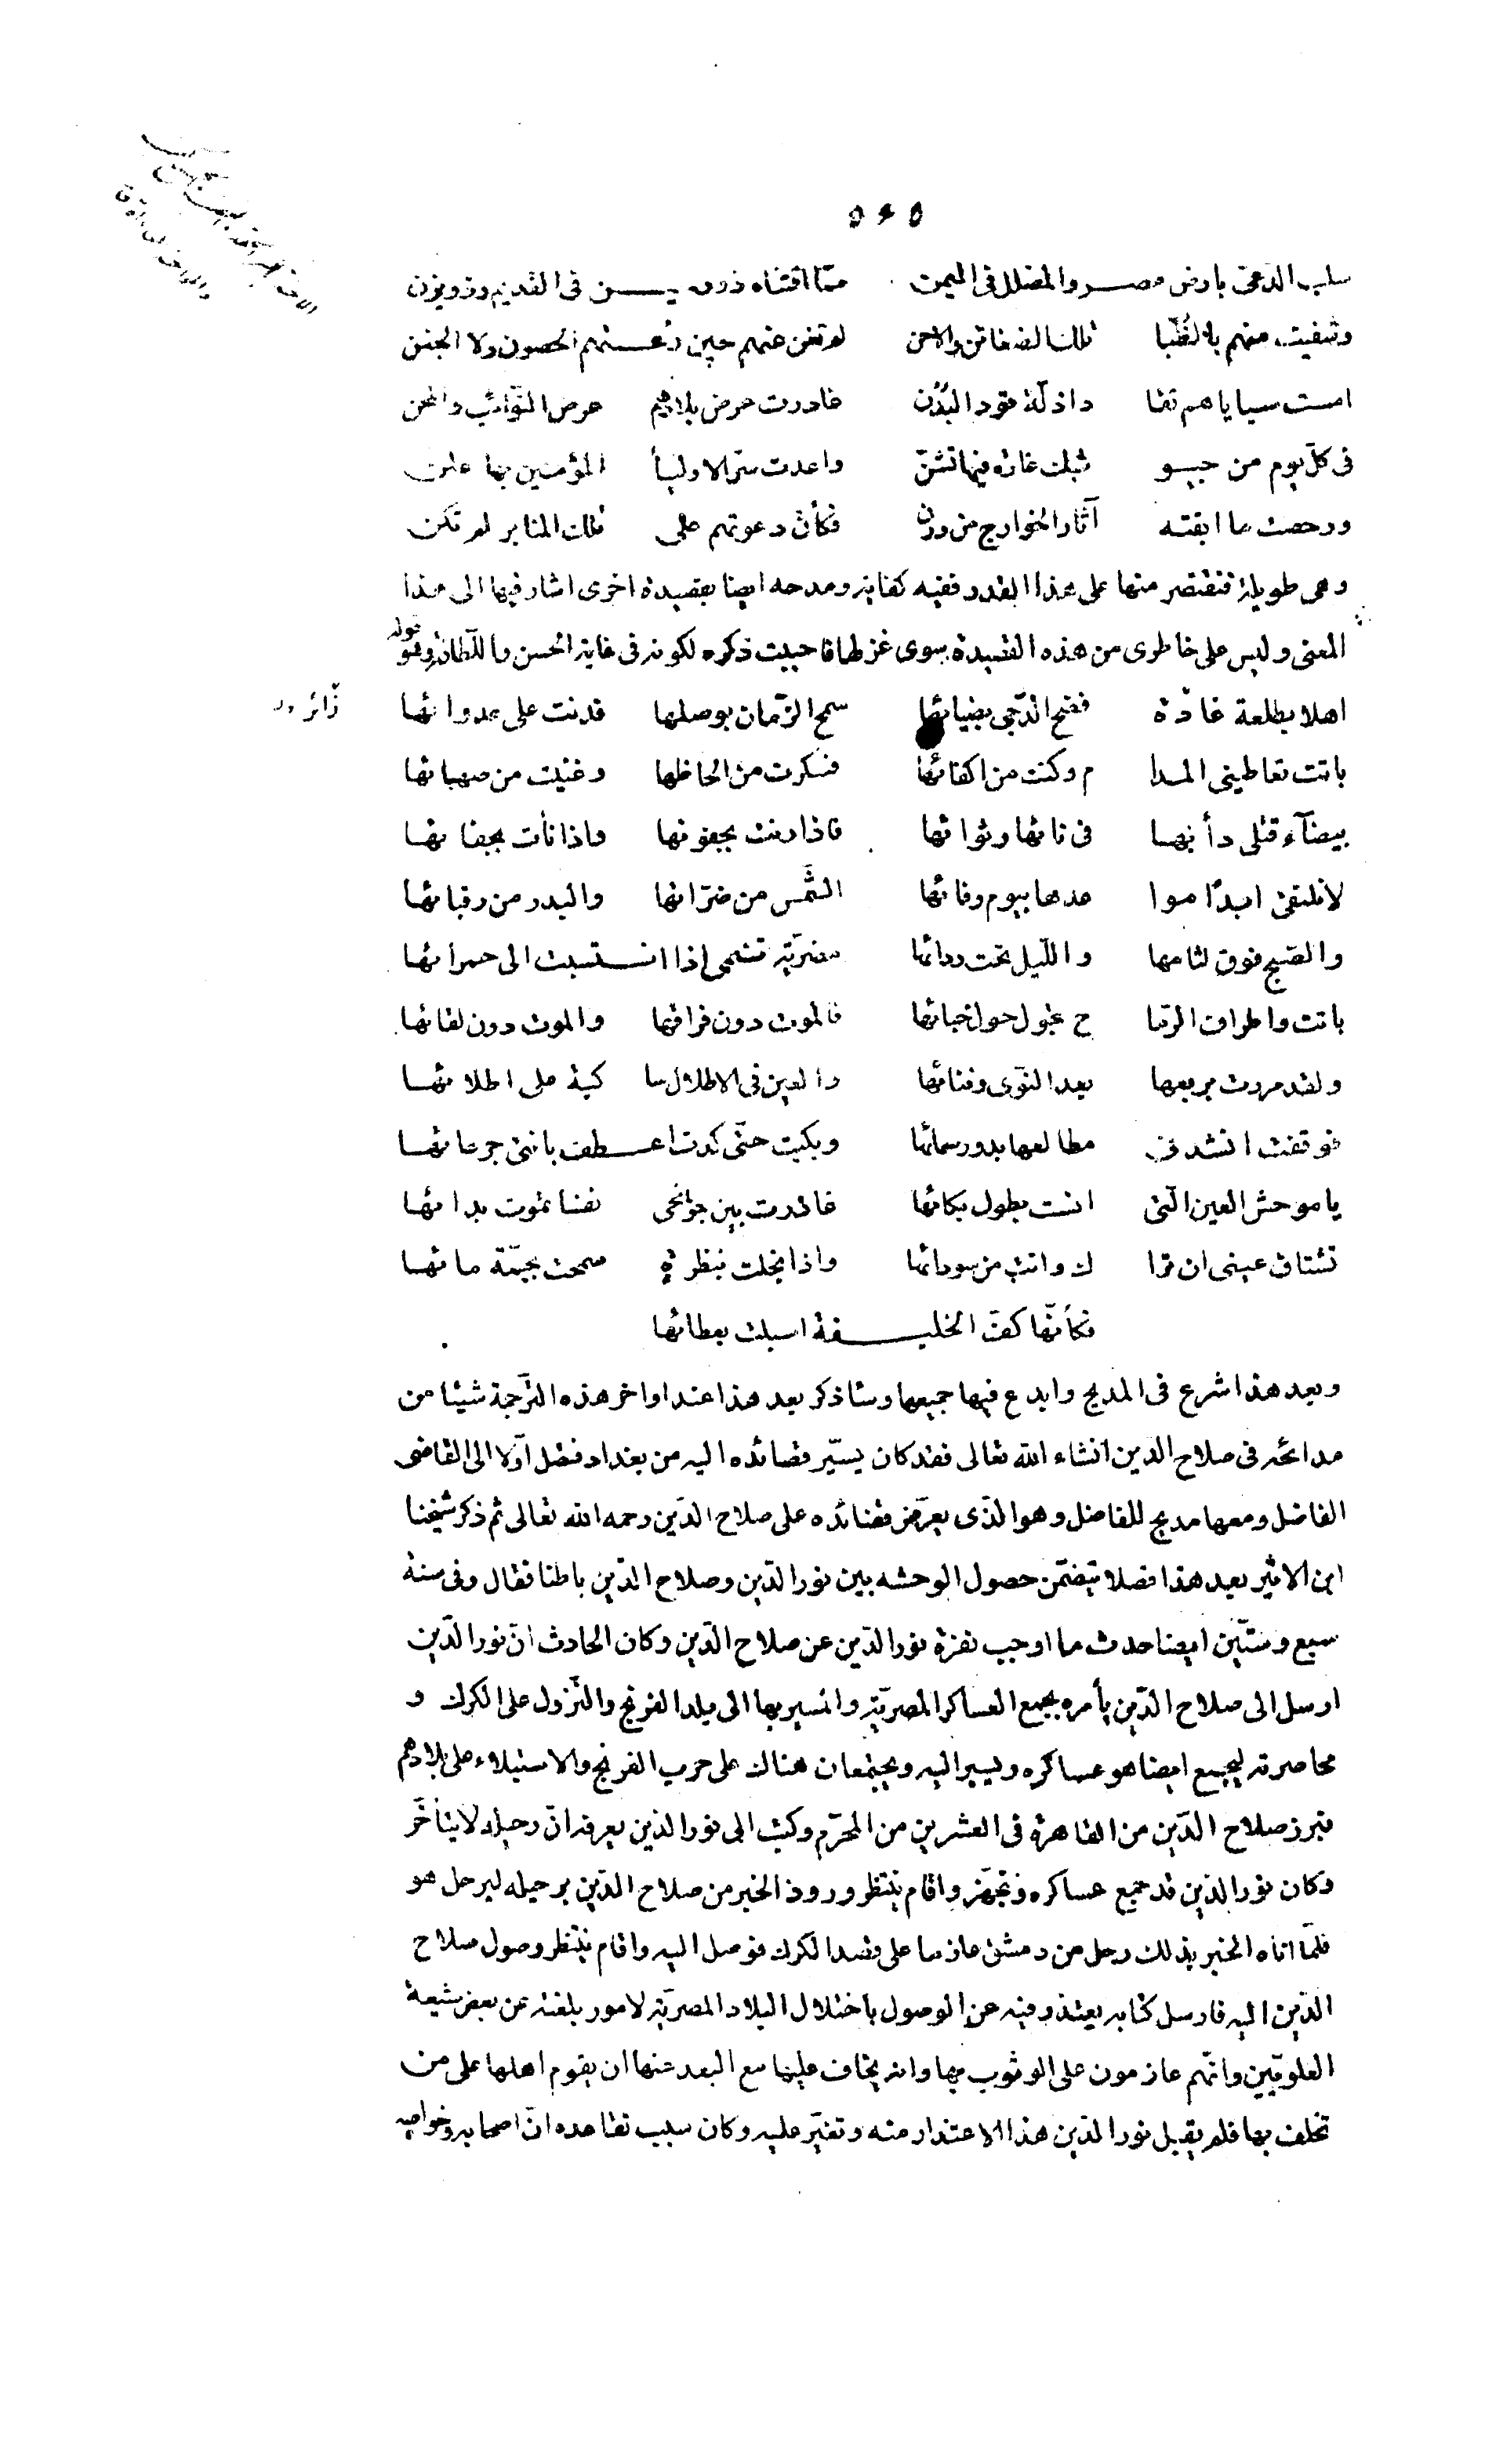 ٥٤٥
سلب الدعی بارض مصر والمضلل فی الیمن مما اقتناه ذو یزن فی القدیم وذو یزن
وشفیت منهم بالظبا تلك الضغائن والاحن لم تغن عنهم حین رعتهم الحصون ولا الجنن
امست سبایاهم تقا د اذلة قود البدن غادرت عرض بلادهم عرض النوائب والمحن
فی كل یوم من جیو شك غارة فیها تشن واعدت سر الاولیا المؤمنین بها علن
ورحضت ما ابقته آثار الخوارج من درن فكأن دعوتهم علی تلك المنابر لم تكن
وهی طویلة فنقتصر منها علی هذا القدر ففیه كفایة ومدحه ایضا بقصیدة اخری اشار فیها الی هذا
المعنی ولیس علی خاطری من هذه القصیدة سوی غزلها فاحببت ذكره لكونه فی غایة الحسن واللطافة وهو قوله
اهلا بطلعة غادة فضح الدجی بضیائها سمح الزمان بوصلها فدنت علی عدوائها زائر
باتت تعاطینی المدا م وكنت من اكفائها فسكرت من الحاظها وغنیت من صهبائها
بیضآء قتلی دأبها فی نائها وثوائها فاذا رنت بجفونها واذا نأت بجفائها
لا نلتقی ابدًا موا عدها بیوم وفائها الشمس من ضراتها والبدر من رقبائها
والصبح فوق لثامها واللیل تحت ردائها مضریة تنمی اذا انتسبت الی حمرائها
باتت واطراف الرما ح تجول حول خبائها فالموت دون فراقها والموت دون لقائها
ولقد مررت بربعها بعد النوی وفنائها والعین فی الاطلال سا كبة علی اطلائها
فوقفت انشد فی مطالعها بدور سمائها وبكیت حتی كدت اعطف بانتی جرعائها
یا موحش العین التی انست بطول بكائها غادرت بین جوانحی نفسا تموت بدائها
تشتاق عینی ان ترا ك وانت من سودائها واذا بخلت بنظرة سمحت بجمة مائها
فكأنها كف الخلیفة اسبلت بعطائها
وبعد هذا شرع فی المدیح وابدع فیها جمیعها وسأذكر بعد هذا عند اواخر هذه الترجمة شیئا من
مدائحه فی صلاح الدین انشاء الله تعالی فقد كان یسیر قصائده الیه من بغداد فتصل اولا الی القاضی
الفاضل ومعها مدیح للفاضل وهو الذی یعرض قصائده علی صلاح الدین رحمه الله تعالی ثم ذكر شیخنا
ابن الاثیر بعد هذا فصلا یتضمن حصول الوحشة بین نور الدین وصلاح الدین باطنا فقال وفی سنة
سبع وستین ایضا حدث ما اوجب نفرة نور الدین عن صلاح الدین وكان الحادث ان نور الدین
ارسل الی صلاح الدین یأمره بجمع العساكر المصریة والمسیر بها الی بلد الفرنج والنزول علی الكرك و
محاصرته لیجمع ایضا هو عساكره ویسیر الیه ویجتمعان هناك علی حرب الفرنج والاستیلاء علی بلادهم
فبرز صلاح الدین من القاهرة فی العشرین من المحرم وكتب الی نور الدین یعرفه ان رحیله لا یتأخر
وكان نور الدین قد جمع عساكره وتجهز واقام ینتظر ورود الخبر من صلاح الدین برحیله لیرحل هو
فلما اتاه الخبر بذلك رحل من دمشق عازما علی قصد الكرك فوصل الیه واقام ینتظر وصول صلاح
الدین الیه فارسل كتابه یعتذر فیه عن الوصول باختلال البلاد المصریة لامور بلغته عن بعض شیعة
العلویین وانهم عازمون علی الوثوب بها وانه یخاف علیها مع البعد عنها ان یقوم اهلها علی من
تخلف بها فلم یقبل نور الدین هذا الاعتذار منه وتغیر علیه وكان سبب تقاعده ان اصحابه وخواصه